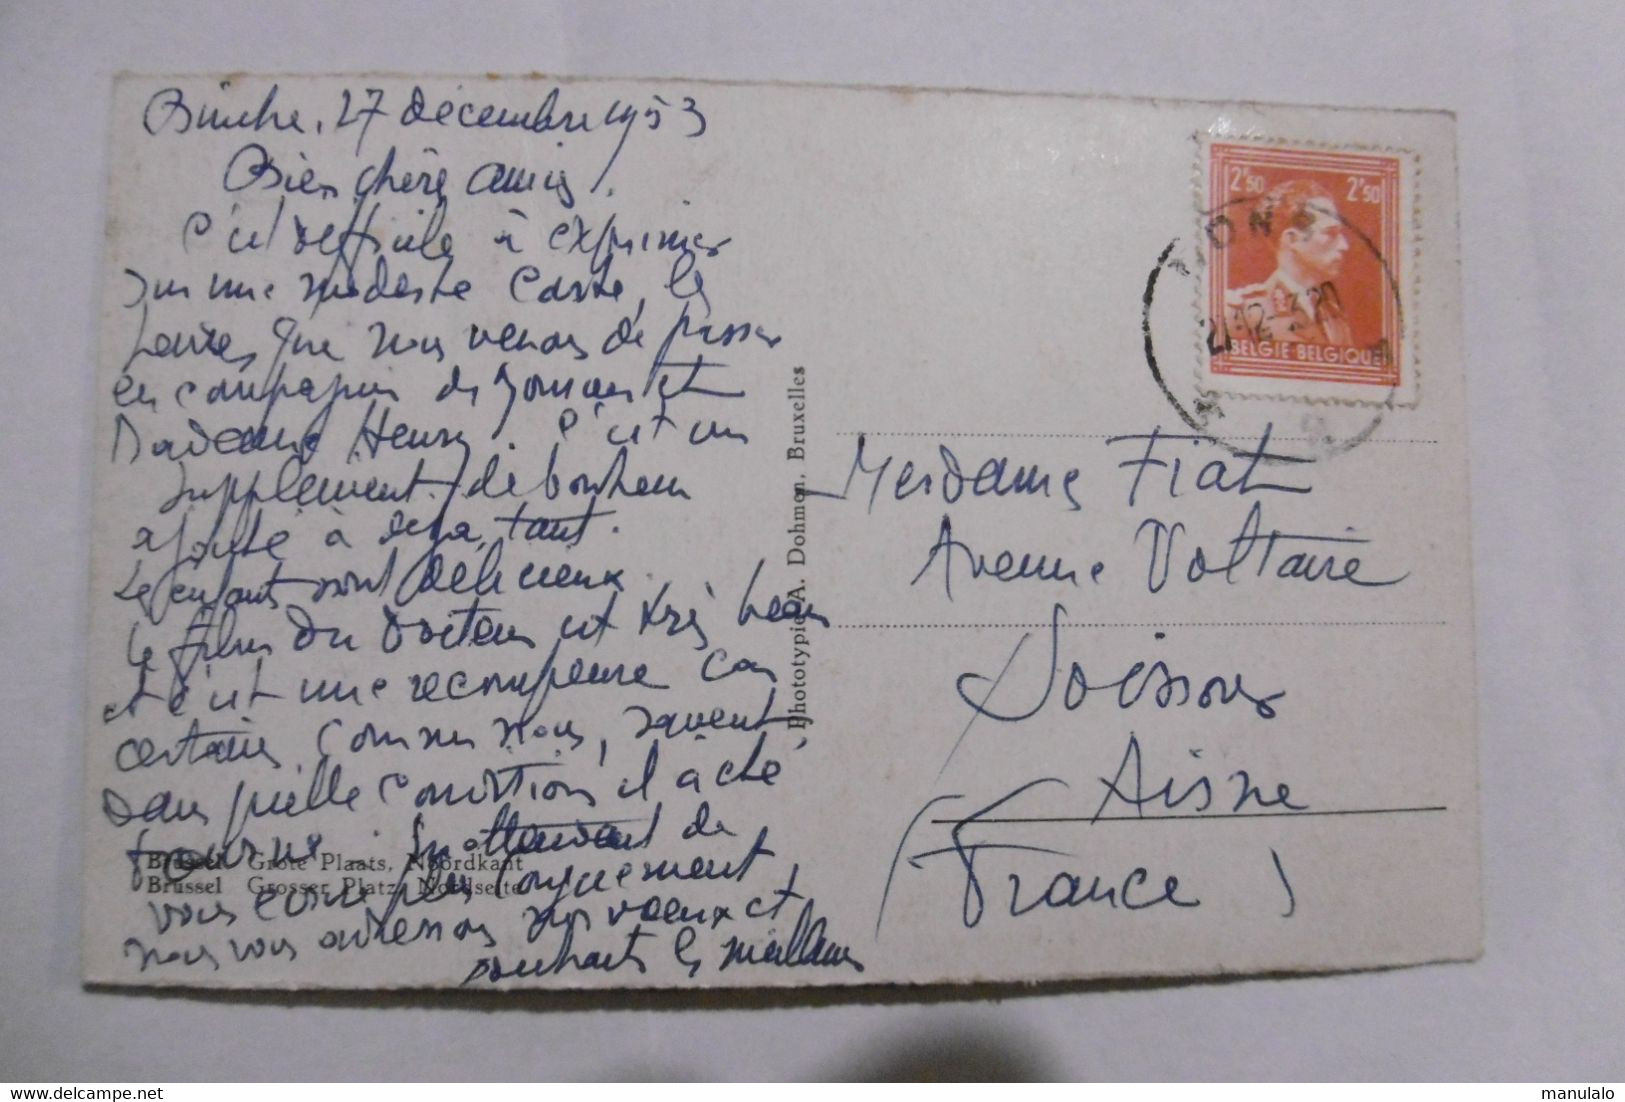 Binche, 27 décembre 1953
Bien chère amie,
C'est difficile à exprimer
sur une modeste carte, les
heures que nous venons de passer
en compagnie de Monsieur et
Madame Henry. C'est un
supplément de bonheur
ajouté à déjà tant.
Les enfants sont délicieux.
Le film du Docteur est très beau
et c'est une récompense car
certains, comme nous, savent
dans quelle condition il a été
fourni. En attendant de
vous écrire plus longuement,
nous vous adressons nos voeux et
souhaits les meilleurs
Brussel Grote Plaats, Noordkant
Brüssel Grosser Platz, Nordseite
Phototypie A. Dohmen, Bruxelles
2'50 2'50
BELGIE BELGIQUE
Madame Fiat
Avenue Voltaire
Soissons
Aisne
France
www.delcampe.net
manulalo